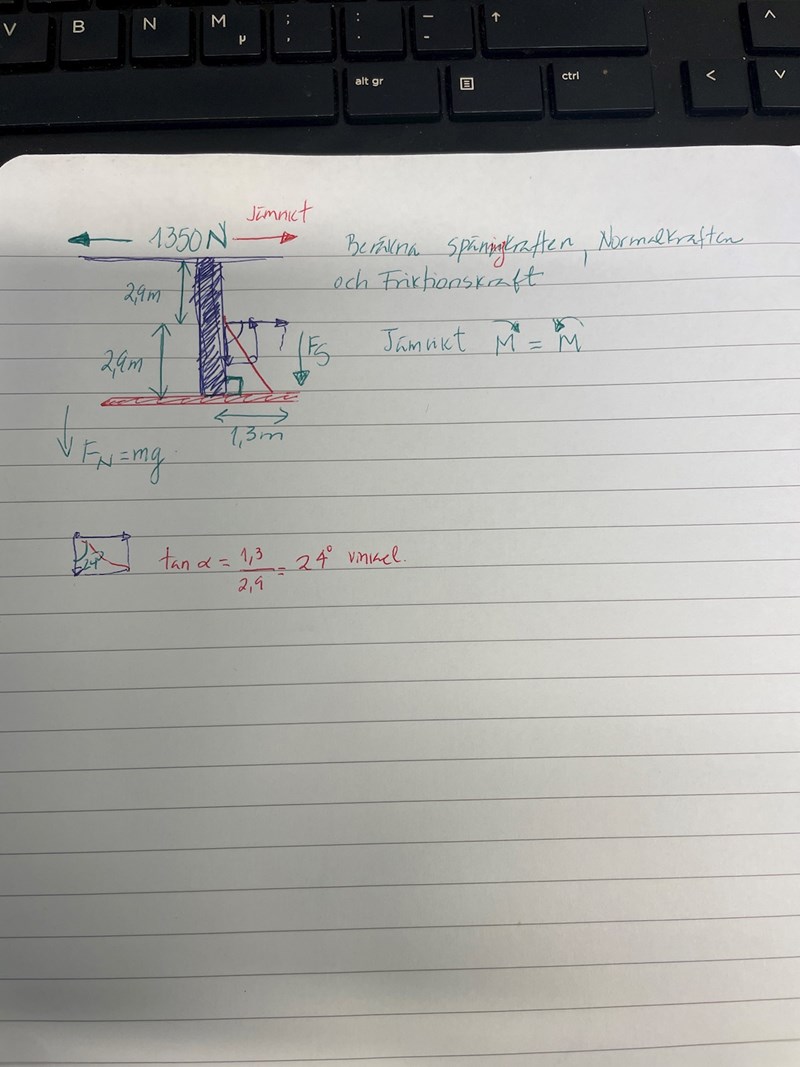 V B N M µ ; , : . – - ↑ ^
alt gr ctrl < V
Jämvikt
1350N
Beräkna spänigkraften, Normalkraften
och Friktionskraft
2,9m
2,9m
FS
Jämvikt M = M
1,3m
FN = mg
24°
tan α = 1,3/2,9 = 24° vinkel.